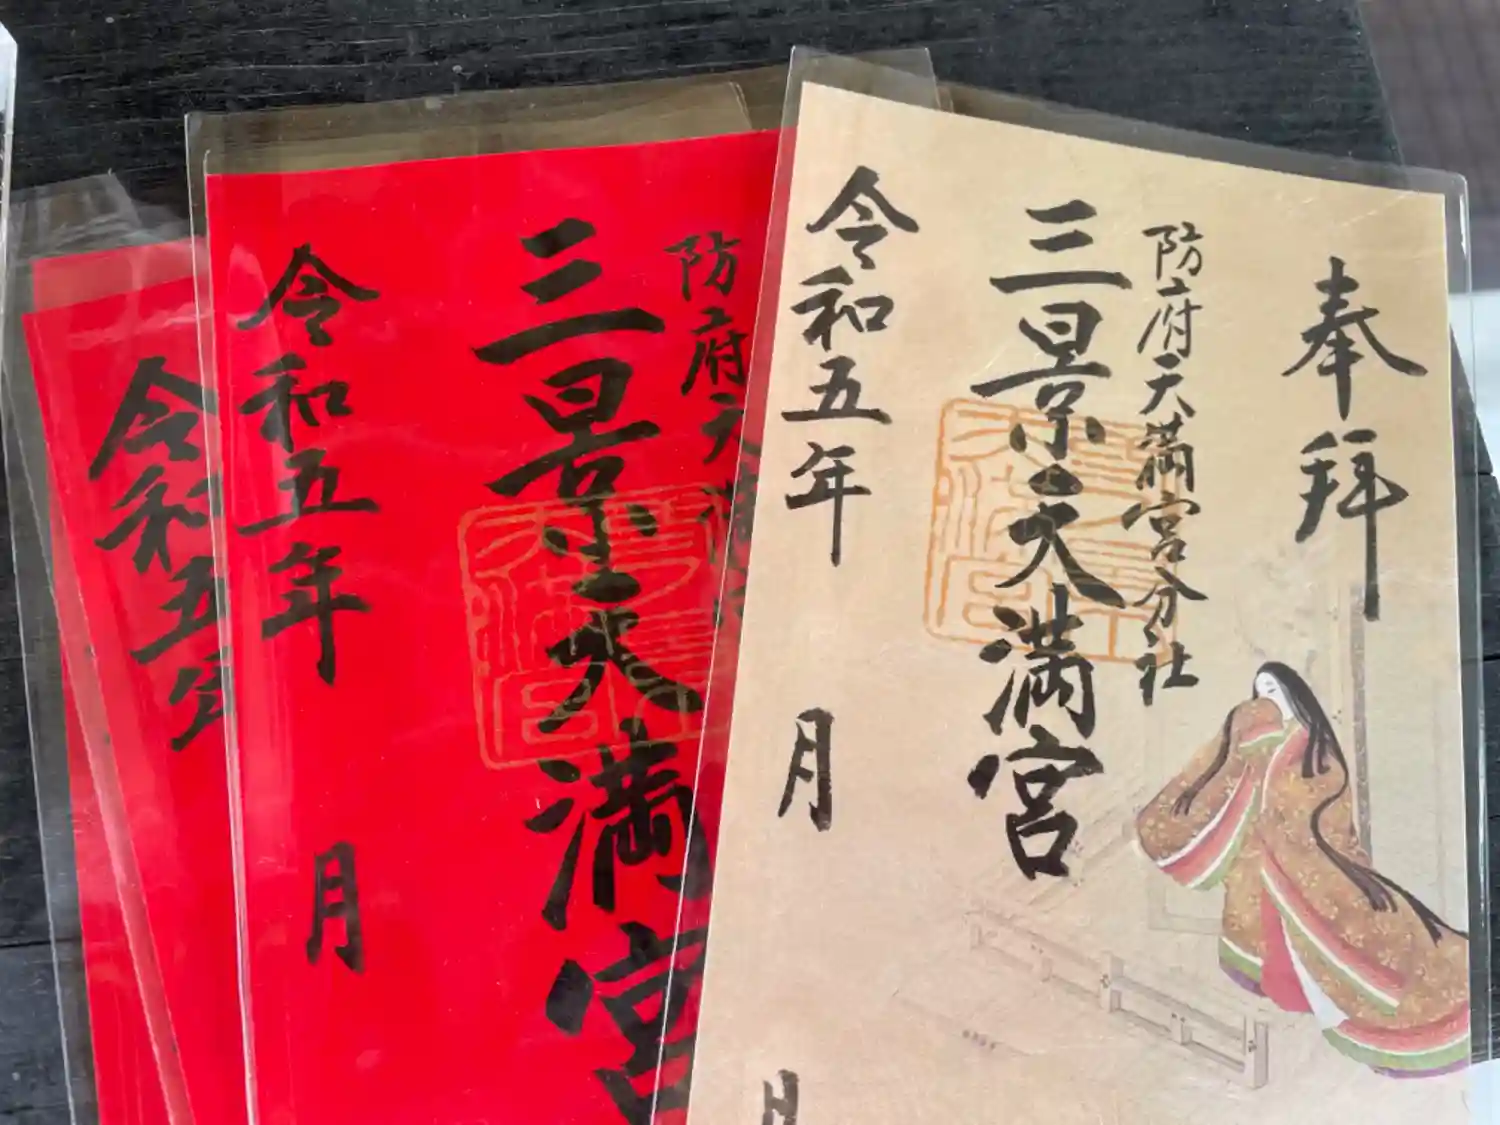 奉拝
防府天満宮分社
三景天満宮
令和五年
月
日
防府天満
三景天満宮
令和五年
月
令和五年